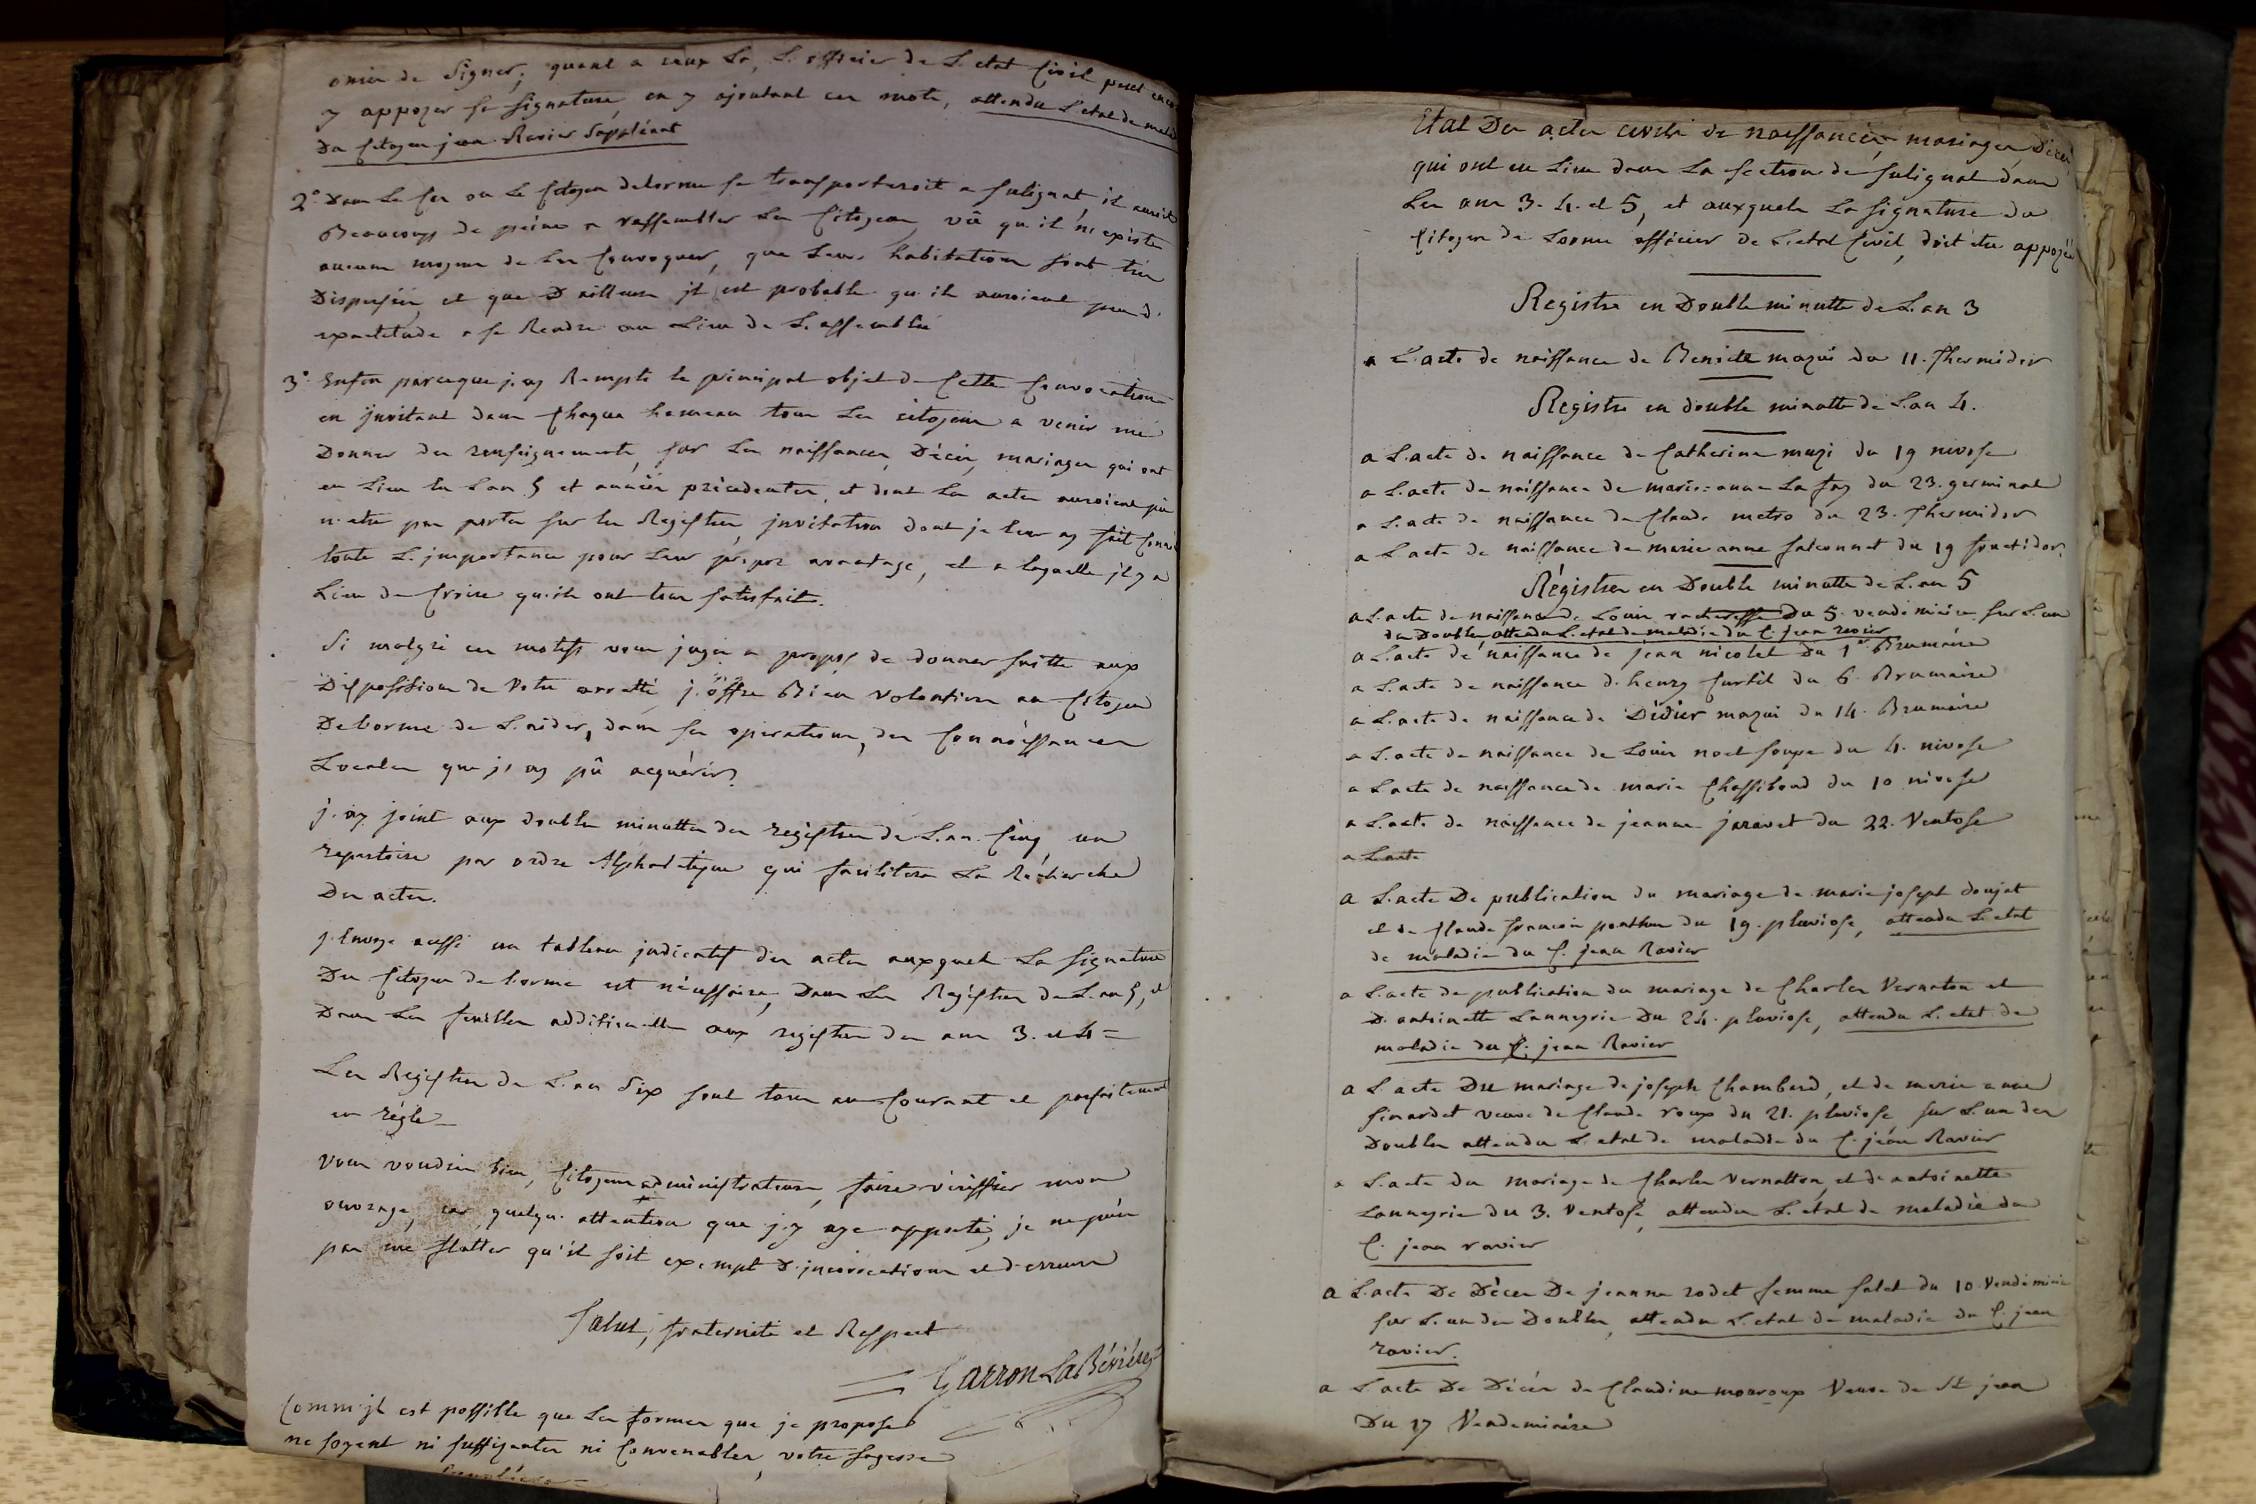 omis de signer, quant a ceux la, L. officier de L. etat Civil peut
y appozer sa signature en y ajoutant ces mots, attendu L etat de
du Citoyen jean Ravier suppléant
2° Dans Le Cas ou Le Citoyen delorme se transporteroit a sulignat il auroit
Beaucoup de peine a rassembler Les Citoyens, vû qu'il n'existe
aucuns moyens de Les Convoquer, que Leurs habitations sont très
Dispersées, et que D'ailleurs jl est probable qu'ils auroient peu d.
exactitude a se Rendre au Lieu de L. assemblée
3°. Enfin parceque j. ay Rempli le principal objet de Cette Convocation
en jnvitant dans Chaque hameau tous Les citoyens a venir me
Donner des renseignements, sur Les naissances, Décès, mariages qui ont
eu Lieu en L'an 5 et années précédentes, et dont Les actes auroient pu
n'etre pas portés sur les Registres, jnvitation dont je leur ay fait
toute L. jmportance pour Leur propre avantage, et a laquelle jl y a
Lieu de Croire qu'ils ont tous satisfaits.
Si malgré ces motifs vous jugés a propos de donner suitte aux
Dispositions de Votre arretté j. offre Bien volontiers au Citoyen
Delorme de L. aider, dans ses operations, des Connoissances
Locales que j. ay pû acquérir.
j. ay joint aux doubles minuttes des registres de L. an Cinq, un
repertoire par ordre Alphabetique qui facilitera La Recherche
Des actes.
j. Envoye aussi un tableau jndicatif des actes auxquels La signature
Du Citoyen delorme est nécessaire, Dans Les Registres de L. an 5, et
Dans Les feuilles additionelles aux registres des ans 3. et 4 =
Les Registres de L. an Six sont tous au Courant et parfaitement
en règle_
Vous voudrés bien, Citoyens administrateurs, faire vérifier mon
ouvrage, car quelqu. attention que j. y aye apporté, je ne puis
pas me flatter qu'il soit exempt D'jncorrections et d'erreurs
Salut, fraternité et Respect
= Garron LaBévière
Comm'jl est possible que Les formes que je propose
ne soyent ni suffisantes ni Convenables, votre sagesse
Etat Des actes civils de naissances, mariages, Décès
qui ont eu Lieu dans La section de sulignat dans
Les ans 3. 4. et 5, et auxquels La signature du
Citoyen de Lorme officier de L. etat Civil, doit être appozée
Registre en Double minutte de L. an 3
a L. acte de naissance de Benoite mazui du 11. Thermidor
Registre en double minutte de L. an 4.
a L. acte de naissance de Catherine mazi du 19 nivose
a L. acte de naissance de marie=anne La fay du 23. germinal
a L. acte de naissance de Claude metro du 23. Thermidor
a L acte de naissance de marie anne falconnet du 19 fructidor.
Régistres en Double minutte de L. an 5
a L. acte de naissance de Louis du 5. vendémiaire sur L. un
des Doubles attendu L. etat de maladie du C. jean ravier
a L. acte de naissance de jean nicolet Du 1er Brumaire
a L. acte de naissance d. henry Curtil du 6. Brumaire
a L. acte de naissance de Didier mazui du 14. Brumaire
a L. acte de naissance de Louis noel soupe du 4. nivose
a L. acte de naissance de marie Chassiboud du 10 nivose
a L. acte de naissance de jeanne jaravet du 22. Ventose
a L. acte
a L. acte De publication du mariage de marie joseph doujat
et de Claude francois ponthus du 19. pluviose, attendu L. etat
de maladie du C. jean Ravier
a L. acte de publication du mariage de Charles Vernaton et
D. antoinette Lanneyrie Du 24. pluviose, attendu L. etat de
maladie du C. jean Ravier
a L. acte Du mariage de joseph Chambard, et de marie anne
sirardet veuve de Claude roux du 21. pluviose sur L. un des
Doubles attendu L. etat de maladie du C. jéan Ravier
a L. acte du mariage de Charles Vernatton, et d. antoinette
Lanneyrie du 3. Ventose, attendu L. etat de maladie du
C. jean ravier
a L. acte De Décès De jeanne rodet femme salet du 10. Vendémiaire
sur L. un des Doubles, attendu L. etat de maladie du C. jean
ravier.
a L. acte De Décès de Claudine monroux Veuve de St. jean
Du 17 Vendemiaire